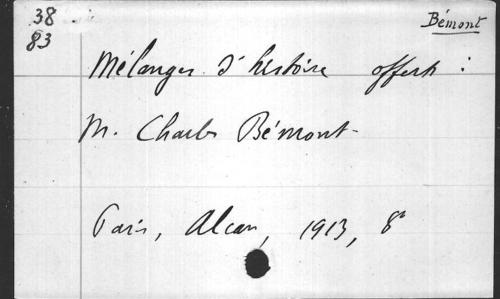 38
83
Bémont
Mélanges d'histoire offerts :
M. Charles Bémont
Paris, Alcan, 1913, 8°